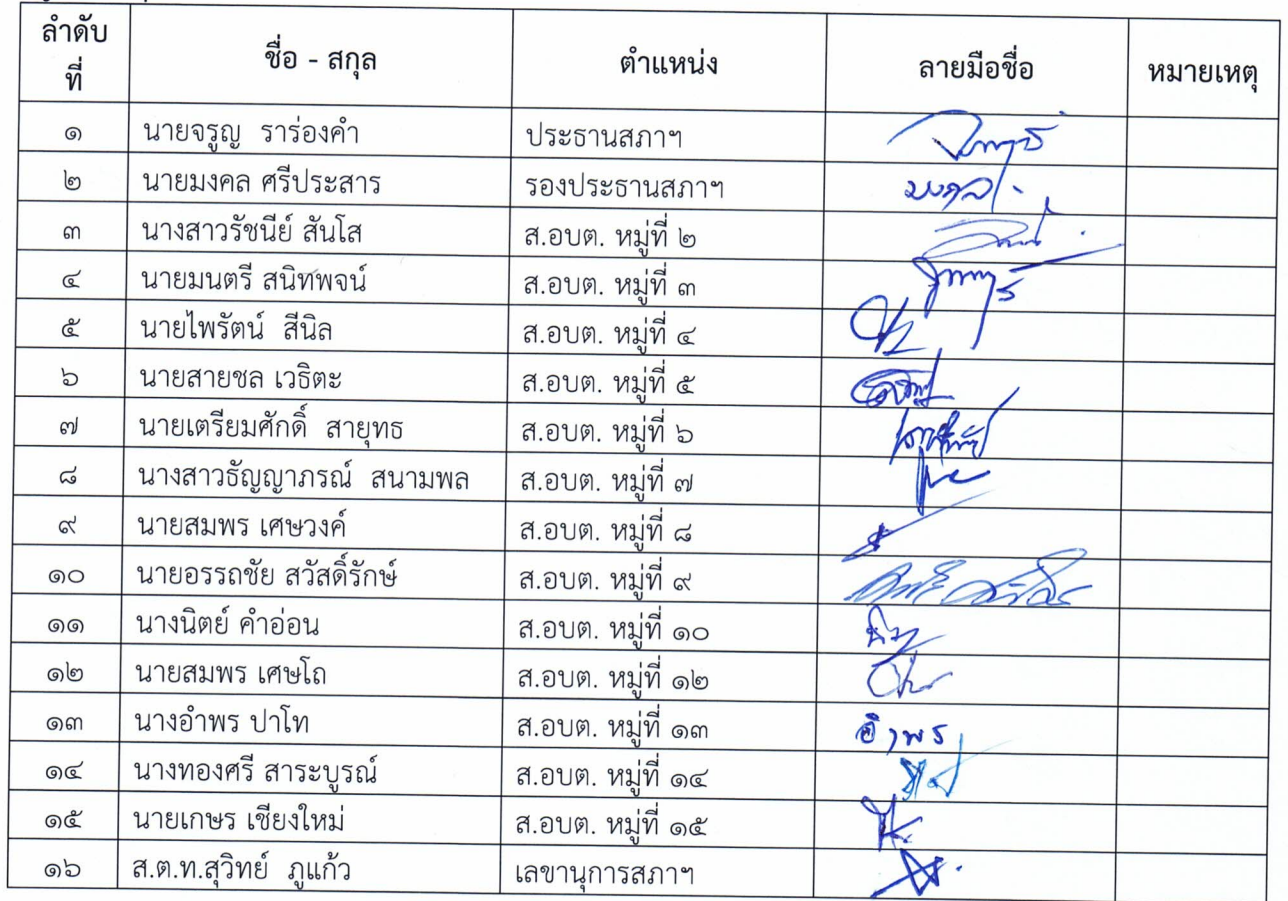 ลำดับที่ ชื่อ - สกุล ตำแหน่ง ลายมือชื่อ หมายเหตุ
๑ นายจรูญ ราร่องคำ ประธานสภาฯ
๒ นายมงคล ศรีประสาร รองประธานสภาฯ มงคล
๓ นางสาวรัชนีย์ สันโส ส.อบต. หมู่ที่ ๒
๔ นายมนตรี สนิทพจน์ ส.อบต. หมู่ที่ ๓
๕ นายไพรัตน์ สีนิล ส.อบต. หมู่ที่ ๔
๖ นายสายชล เวธิตะ ส.อบต. หมู่ที่ ๕
๗ นายเตรียมศักดิ์ สายุทธ ส.อบต. หมู่ที่ ๖
๘ นางสาวธัญญาภรณ์ สนามพล ส.อบต. หมู่ที่ ๗
๙ นายสมพร เศษวงค์ ส.อบต. หมู่ที่ ๘
๑๐ นายอรรถชัย สวัสดิ์รักษ์ ส.อบต. หมู่ที่ ๙
๑๑ นางนิตย์ คำอ่อน ส.อบต. หมู่ที่ ๑๐
๑๒ นายสมพร เศษโถ ส.อบต. หมู่ที่ ๑๒
๑๓ นางอำพร ปาโท ส.อบต. หมู่ที่ ๑๓ อำพร
๑๔ นางทองศรี สาระบูรณ์ ส.อบต. หมู่ที่ ๑๔
๑๕ นายเกษร เชียงใหม่ ส.อบต. หมู่ที่ ๑๕
๑๖ ส.ต.ท.สุวิทย์ ภูแก้ว เลขานุการสภาฯ